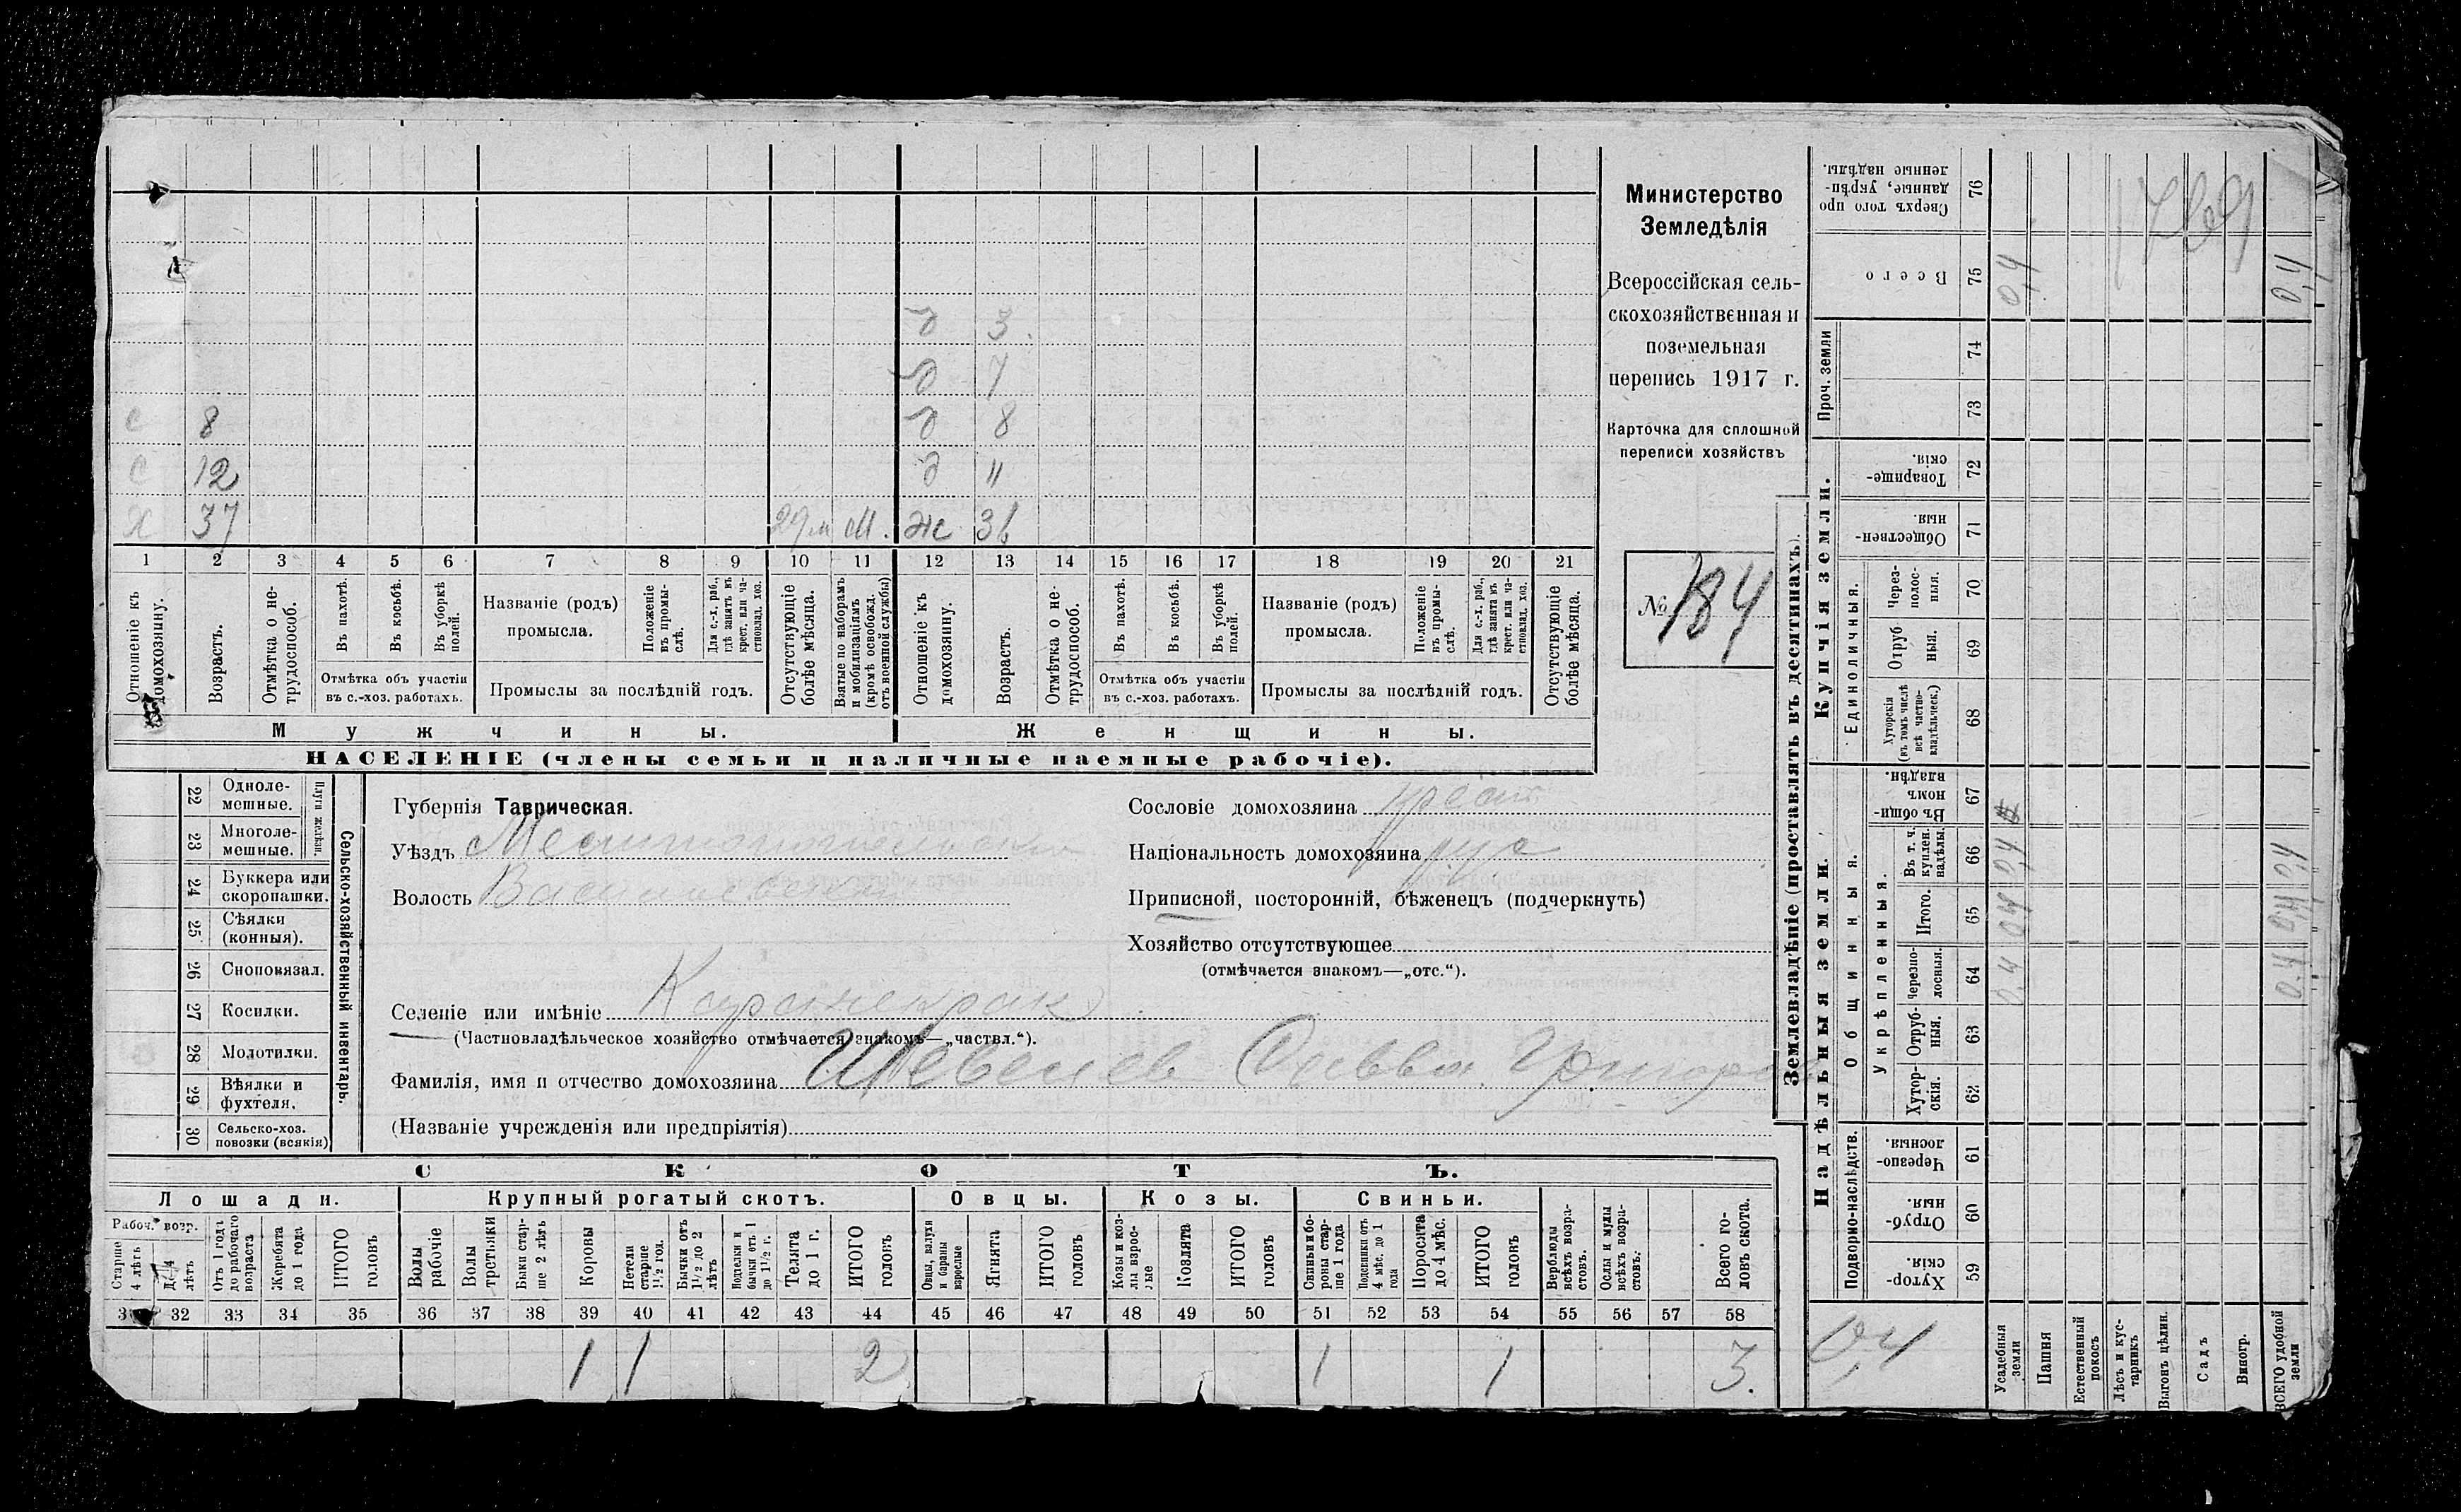 Министерство
Земледѣлія
Всероссійская сель-
скохозяйственная и
поземельная
перепись 1917 г.
Карточка для сплошной
переписи хозяйствъ
№ 184
д 3.
д 7
с 8 д 8
с 12 д "
Х 37 29 м М. Ж 36
1 2 3 4 5 6 7 8 9 10 11 12 13 14 15 16 17 18 19 20 21
Отношеніе къ домохозяину.
Возрастъ.
Отмѣтка о не-трудоспособ.
Въ пахотѣ.
Въ косьбѣ.
Въ уборкѣ полей.
Отмѣтка объ участіи
въ с.-хоз. работахъ.
Названіе (родъ)
промысла.
Положеніе въ промы-слѣ.
Для с.-х. раб., гдѣ занятъ въ крест. или ча-стновлад. хоз.
Промыслы за послѣдній годъ.
Отсутствующіе болѣе мѣсяца.
Взятые по наборамъ и мобилизаціямъ (кромѣ освобожд. отъ военной службы)
Отношеніе къ домохозяину.
Возрастъ.
Отмѣтка о не-трудоспособ.
Въ пахотѣ.
Въ косьбѣ.
Въ уборкѣ полей.
Отмѣтка объ участіи
въ с.-хоз. работахъ.
Названіе (родъ)
промысла.
Положеніе въ промы-слѣ.
Для с.-х. раб., гдѣ занята въ крест. или ча-стновлад. хоз.
Промыслы за послѣдній годъ.
Отсутствующіе болѣе мѣсяца.
Мужчины. Женщины.
НАСЕЛЕНІЕ (члены семьи и наличные наемные рабочіе).
Сельско-хозяйственный инвентарь.
Плуги желѣзн.
22 Одноле-мешные.
23 Многоле-мешные.
24 Буккера или скоропашки.
25 Сѣялки (конныя).
26 Сноповязал.
27 Косилки.
28 Молотилки.
29 Вѣялки и фухтеля.
30 Сельско-хоз. повозки (всякія)
Губернія Таврическая.
Уѣздъ Мелитопольский
Волость Васильевская
Сословіе домохозяина крест
Національность домохозяина рус
Приписной, посторонній, бѣженецъ (подчеркнуть)
Хозяйство отсутствующее
(отмѣчается знакомъ—„отс.“).
Селеніе или имѣніе
(Частновладѣльческое хозяйство отмѣчается знакомъ—„частвл.“).
Фамилія, имя и отчество домохозяина Савва
(Названіе учрежденія или предпріятія)
СКОТЪ.
Лошади. Крупный рогатый скотъ. Овцы. Козы. Свиньи.
Рабоч. возр.
Старше 4 лѣтъ
До 4 лѣтъ
Отъ 1 года до рабочаго возраста
Жеребята до 1 года
ИТОГО головъ
Волы рабочіе
Волы третьяки
Быки стар-ше 2 лѣтъ
Коровы
Нетели старше 1½ год.
Бычки отъ 1½ до 2 лѣтъ
Подтелки и бычки отъ 1 до 1½ г.
Телята до 1 г.
ИТОГО головъ
Овцы, валухи и бараны взрослые
Ягнята
ИТОГО головъ
Козы и коз-лы взрос-лые
Козлята
ИТОГО головъ
Свиньи и бо-ровы стар-ше 1 года
Подсвинки отъ 4 мѣс. до 1 года
Поросята до 4 мѣс.
ИТОГО головъ
Верблюды всѣхъ возра-стовъ.
Ослы и мулы всѣхъ возра-стовъ.
Всего го-ловъ скота.
32 33 34 35 36 37 38 39 40 41 42 43 44 45 46 47 48 49 50 51 52 53 54 55 56 57 58
1 1 2 1 1 3.
Землевладѣніе (проставлять въ десятинахъ).
Надѣльныя земли. Купчія земли. Проч. земли
Подворно-наслѣдств.
Общинныя.
Укрѣпленныя.
Единоличныя.
59 Хутор-скія.
60 Отруб-ныя.
61 Черезпо-лосныя.
62 Хутор-скія.
63 Отруб-ныя.
64 Черезпо-лосныя.
65 Итого.
66 Въ т. ч. куплен. надѣлы.
67 Въ общи-номъ владѣн.
68 Хуторскія (въ томъ числѣ всѣ частно-владѣльческ.)
69 Отруб-ныя.
70 Через-полос-ныя.
71 Обществен-ныя.
72 Товарище-скія.
73
74
75 Всего
76 Сверхъ того про-данные, укрѣп-ленные надѣлы.
Усадебныя земли 0.4 0.4 0,4 0,4
Пашня
Естественный покосъ
Лѣсъ и кус-тарникъ
Выгонъ цѣлин.
Садъ
Виногр.
ВСЕГО удобной земли 0.4 0,4 0,4 0,4
0,4
1769